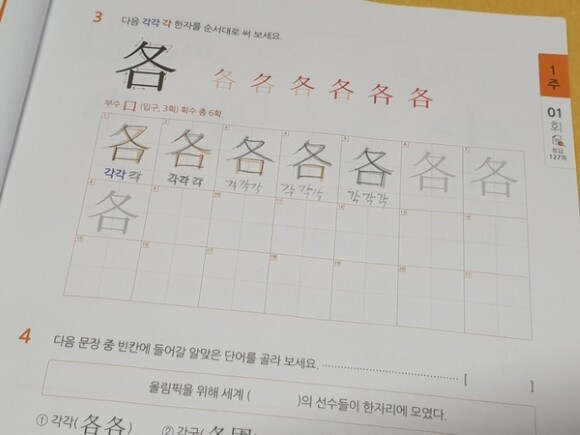 3 다음 각각 각 한자를 순서대로 써 보세요.
各 各 各 各 各 各 各
부수 口 (입구, 3획) 획수 총 6획
1 2 3 4 5 6 7
各 各 各 各 各 各 各
각각 각 각각 각 각각각 각 각각 각 각각
8
各
15 16 17 18 19 20 21
1
주
01
회
정답
127쪽
4 다음 문장 중 빈칸에 들어갈 알맞은 단어를 골라 보세요. [ ]
올림픽을 위해 세계 ( )의 선수들이 한자리에 모였다.
① 각각(各各) ② 각국(各国)